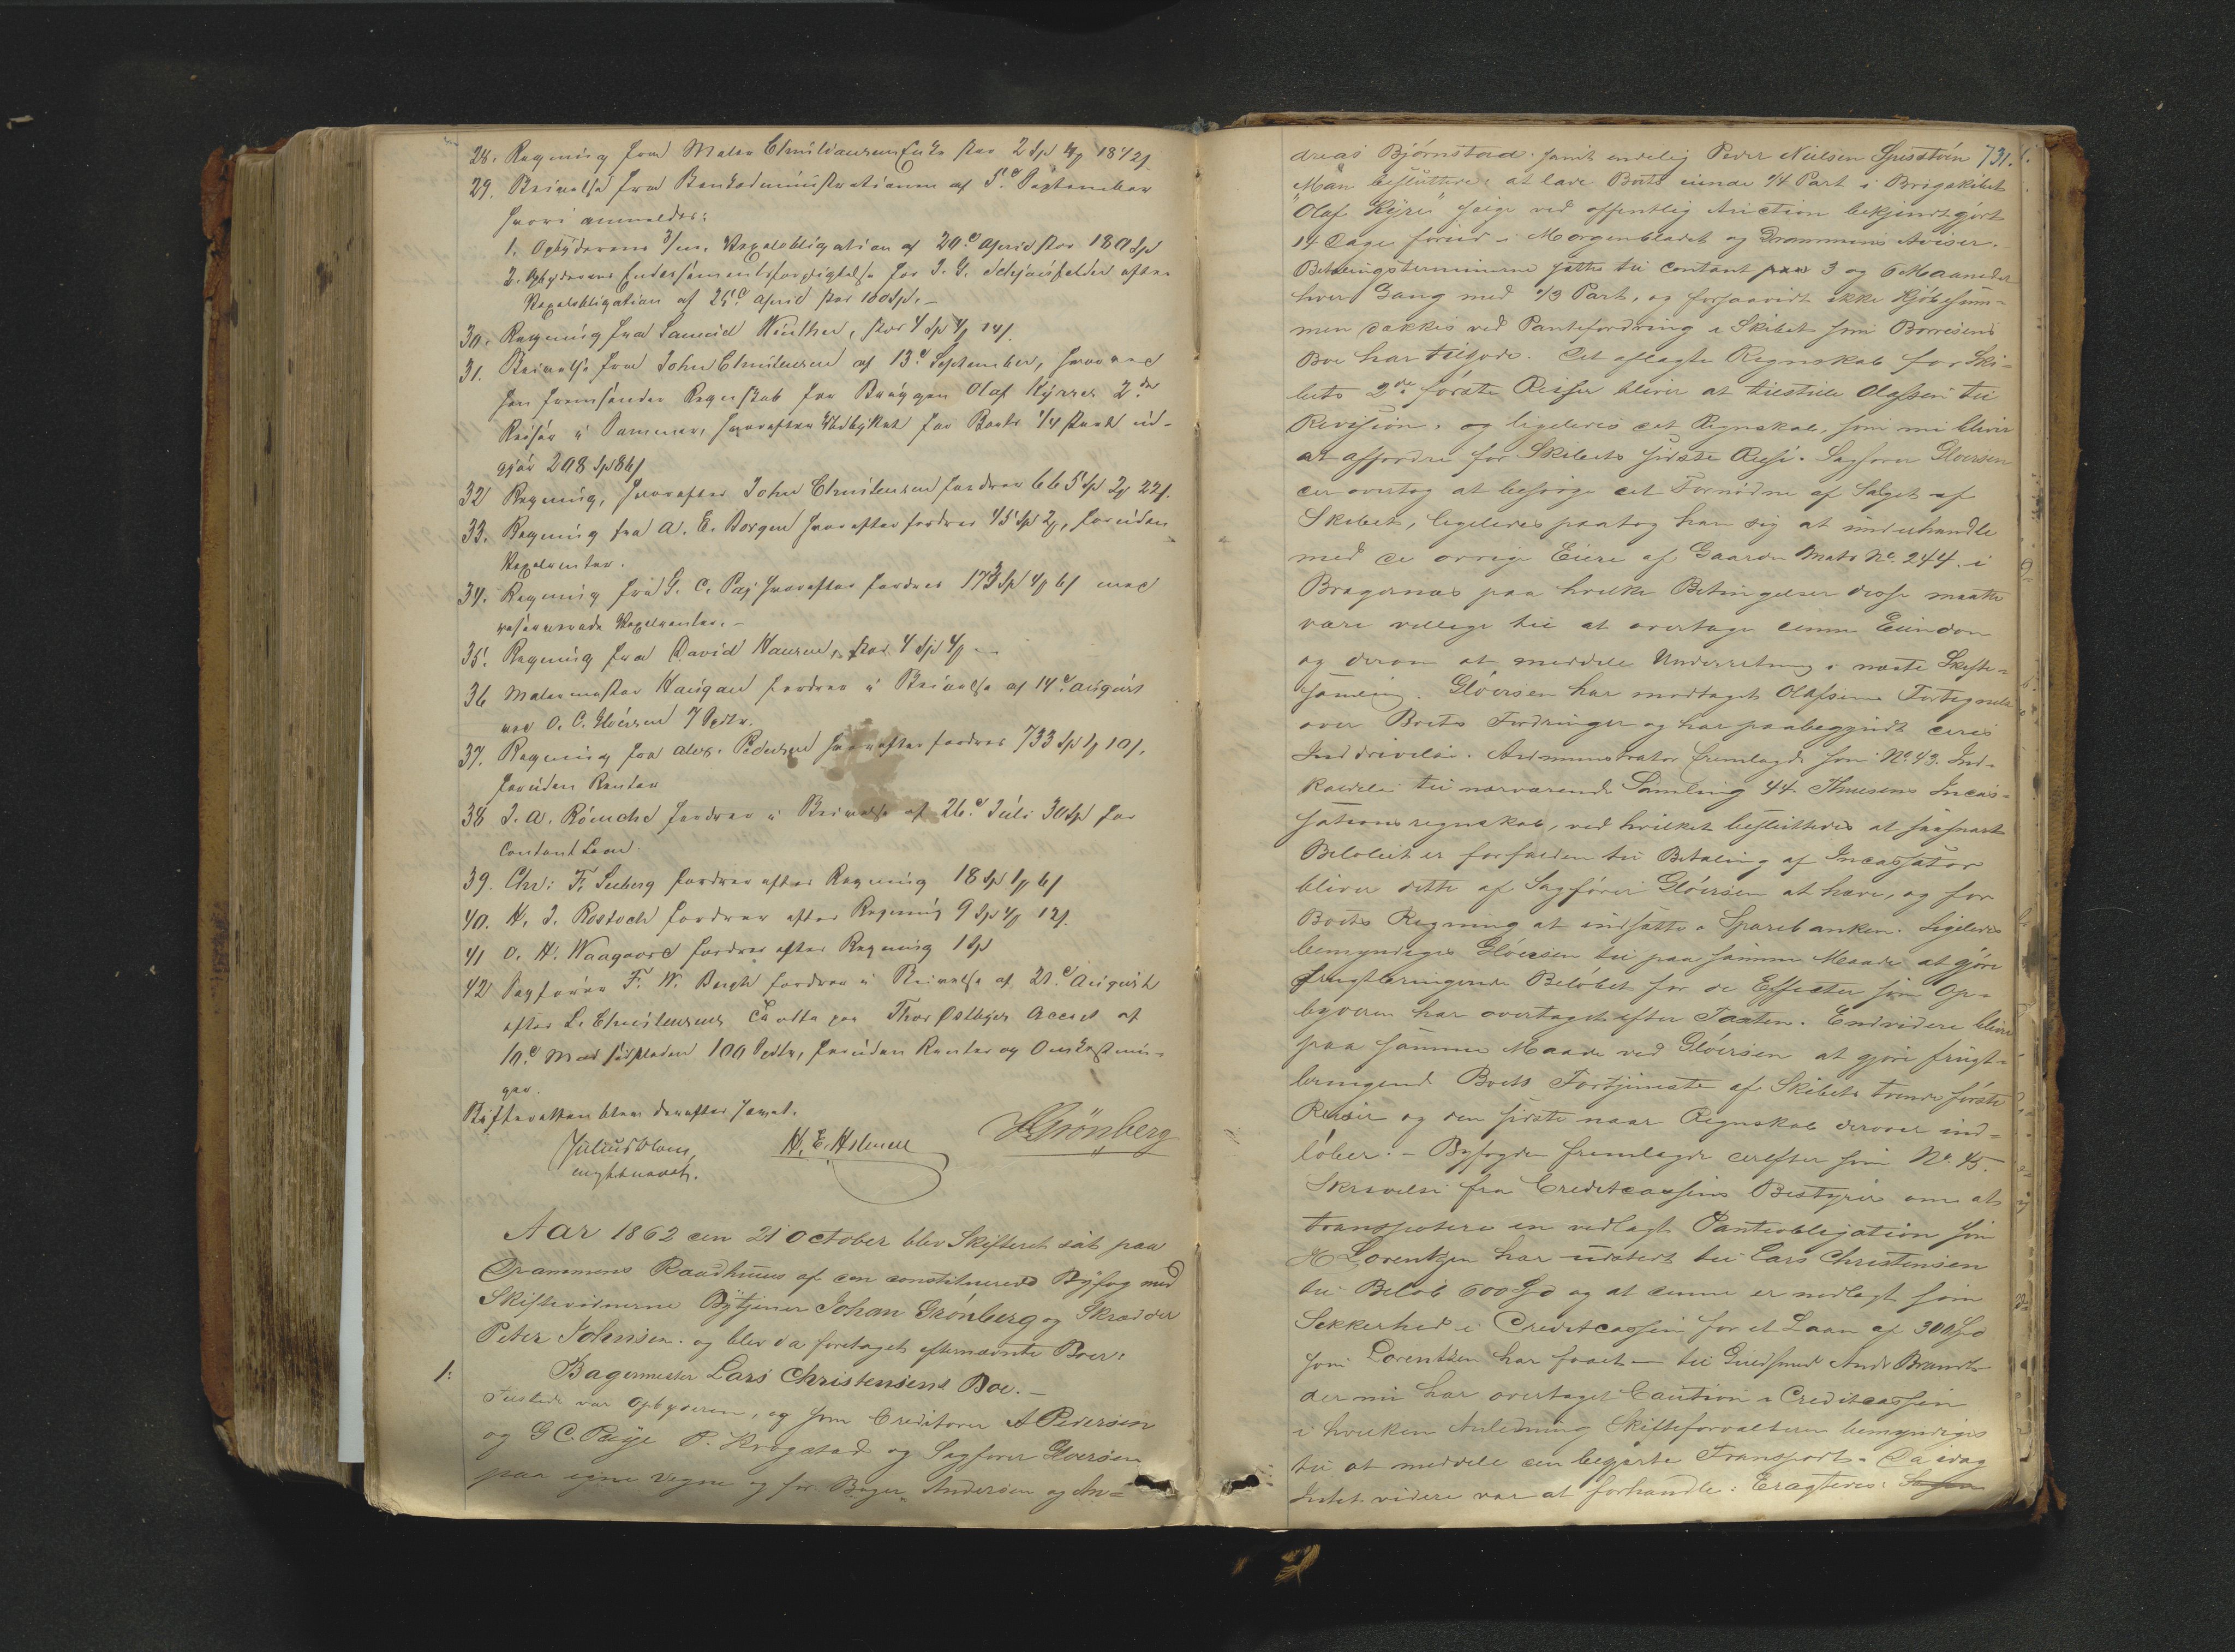 28. Regning fra Maler Christiansens Enke stor 2 Spd 4 18½ s
29. Skrivelse fra Bankadministrationen af 5te September
hvori anmeldes:
1. Opbyderens 3/m. Vexelobligation af 20de April stor 180 Spd
2. Opbyderens Endossementsforpligtelse for I. G. efter
Vexelobligation af 25de April stor 100 Spd. –
30. Regning fra Lauritz Winther, stor 4 Spd 4 14 s.
31. Skrivelse fra John Christensen af 13de September, hvorved
han fremsender Regnskab for Briggen Olaf Kyrres 2de
Reiser i Sommer, hvorefter Udbyttet for Boets 1/4 Part ud-
gjør 208 Spd 86 s
32 Regning, hvorefter John Christensen fordrer 665 Spd 2 22 s.
33. Regning fra A. E. Borgen hvorefter fordres 45 Spd 2, foruden
Vexelrenter.
34. Regning fra G. C. Paij hvorefter fordres 173 Spd 4 6 s med
reserverede Vexelrenter. –
35. Regning fra David Hansen, stor 4 Spd 4 –
36 Malermester Haugan fordrer i Skrivelse af 14de August
ved O. C. Gløersen 7 Spdlr.
37. Regning fra Alex. Pedersen hvorefter fordres 733 Spd 1 10 s.
foruden Renter
38 I. A. fordrer i Skrivelse af 26de Juli 30 Spd for
contant Laan.
39. Chr: F. Seeberg fordrer efter Regning 18 Spd 1 6 s
40. H. I. Rostoch fordrer efter Regning 9 Spd 4 12 s.
41 O. H. Waagaard fordrer efter Regning 1 Spd
42 Sagfører F. W. Bugge fordrer i Skrivelse af 21de August
efter L. Christensens paa Thor Østbyes Accept af
10de Mai sidstleden 100 Spdlr, foruden Renter og Omkostnin-
ger.
Skifteretten blev derefter hævet.
Julius Blom, H. E. Holmen HGrönberg
const.
Aar 1862 den 21 October blev Skifteret sat paa
Drammens Raadhuus af den constituerede Byfog med
Skiftevidnerne Bytjener Johan Grönberg og Skrædder
Peter Johnsen. og blev da foretaget efternævnte Boer:
1: Bagermester Lars Christensens Boe. –
Tilstede var Opbyderen, og som Creditorer A Pedersen
og G C. Paije P. Krogstad og Sagfører Gloersen
paa egne Vegne og for Bager Andersen og An=
731.
dreas Bjørnstad. samt endelig Peder Nielsen
Man besluttede: at lade Boets eiende 1/4 Part i Brigskibet
"Olaf Kyrre" sælge ved offentlig Auction bekjendtgjort
14 Dage forud i Morgenbladet og Drammens Aviser.
Betalingsterminerne sættes til contant 3 og 6 Maaneder
hver Gang med 1/3 Part, og forsaavidt ikke Kjøbesum-
men dækkes ved Pantefordring i Skibet som Borresens
Boe har tilgode. Det aflagte Regnskab for Ski-
bets 2de første Reiser bliver at tilstille Olafsen til
Revision, og ligeledes det Regnskab, som nu bliver
at affordre for Skibets sidste Reise. Sagfører Gloersen
der overtog at besørge det Fornødne af Salget af
Skibet, ligeledes paatog han sig at underhandle
med de øvrige Eiere af Gaarden Matr No. 244 i
Bragernæs paa hvilke Betingelser disse maatte
være villige til at overtage denne Eiendom
og derom at meddele Underretning i næste Skifte-
samling. Gløersen har modtaget Olafsens Fortegnelse
over Boets Fordringer og har paabegyndt deres
Inddrivelse. Administrator fremlagde som No. 43. Ind-
kaldelse til nærværende Samling 44. Thuesens Incas-
sations regnskab, ved hvilket besluttedes at saasnart
Beløbet er forfalden til Betaling af Incassator
bliver dette af Sagfører Gløersen at hæve, og for
Boets Regning at indsætte i Sparebanken. Ligeledes
bemyndiges Gløersen til paa samme Maade at gjøre
frugtbringende Beløbet for de Effecter som Op-
byderen har overtaget efter Taxten. Endvidere bliver
paa samme Maade ved Gløersen at gjøre frugt-
bringende Boets Fortjeneste af Skibets tvende første
Reiser og den sidste naar Regnskab derover ind-
løber. – Byfogden fremlagde derefter som No. 45.
Skrivelse fra Creditcassens Bestyrer om at
transportere en vedlagt Panteobligation som
H Lorentzen har udstedt til Lars Christensen
til Beløb 600 Spd og at denne er nedlagt som
Sikkerhed i Creditcassen for et Laan af 300 Spd
som Lorentzen har faaet – til Guldsmed Andr Brandt
der nu har overtaget Caution i Creditcassen
i hvilken Anledning Skifteforvalteren bemyndiges
til at meddele den begjærte Transport. Da idag
Intet videre var at forhandle: Eragtedes: